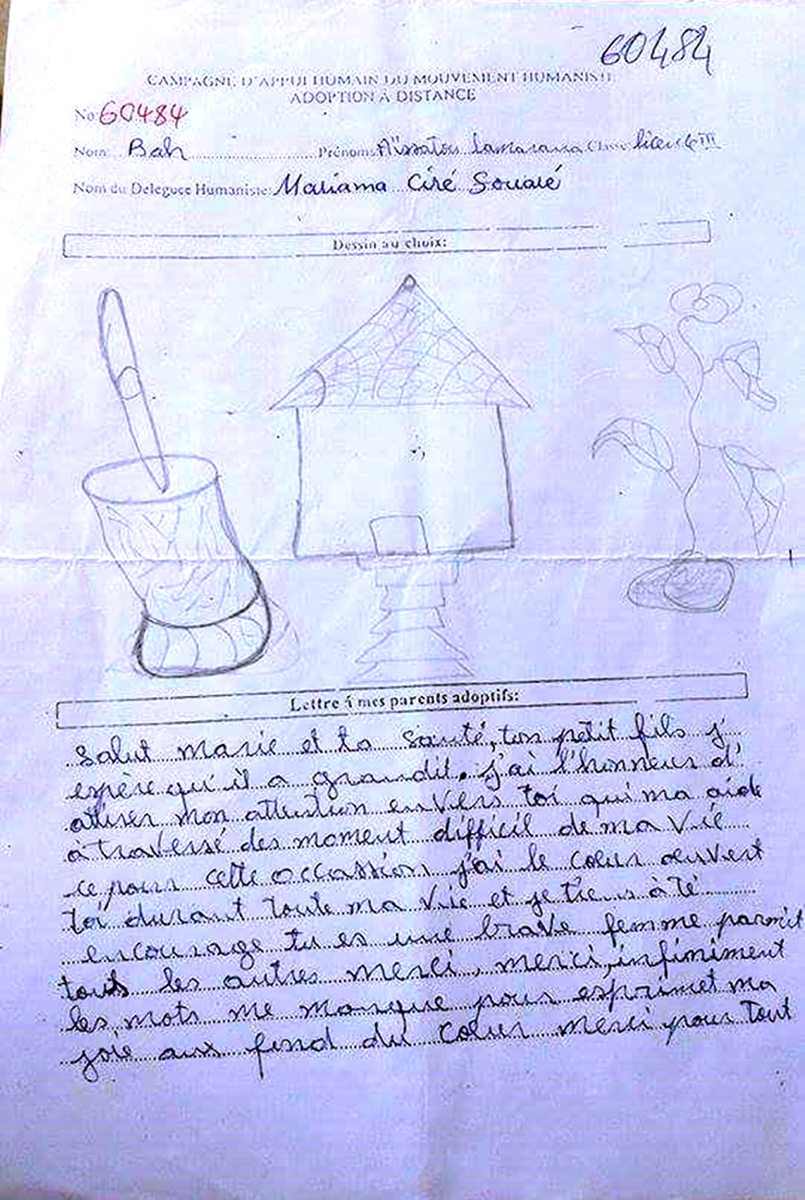 60484
CAMPAGNE D'APPUI HUMAIN DU MOUVEMENT HUMANISTE
ADOPTION À DISTANCE
No 60484
Nom: Bah Prénoms Aïssatou Lamarana Classe: licence III
Nom du Deleguee Humaniste: Mariama Ciré Souaré
Dessin au choix:
Lettre á mes parents adoptifs:
Salut marie et la santé, ton petit fils j'
espère qu'il a grandit. j'ai l'honneur d'
attirer mon attention envers toi qui ma aide
à traversé des moment difficil de ma vie
ce pour cette occassion j'ai le coeur ouvert
toi durant toute ma vie et je tiens à té
encourage tu es une brave femme parmit
tous les autres merci, merci, infiniment
les mots me manque pour esprimet ma
joie aux fond du coeur merci pour tout